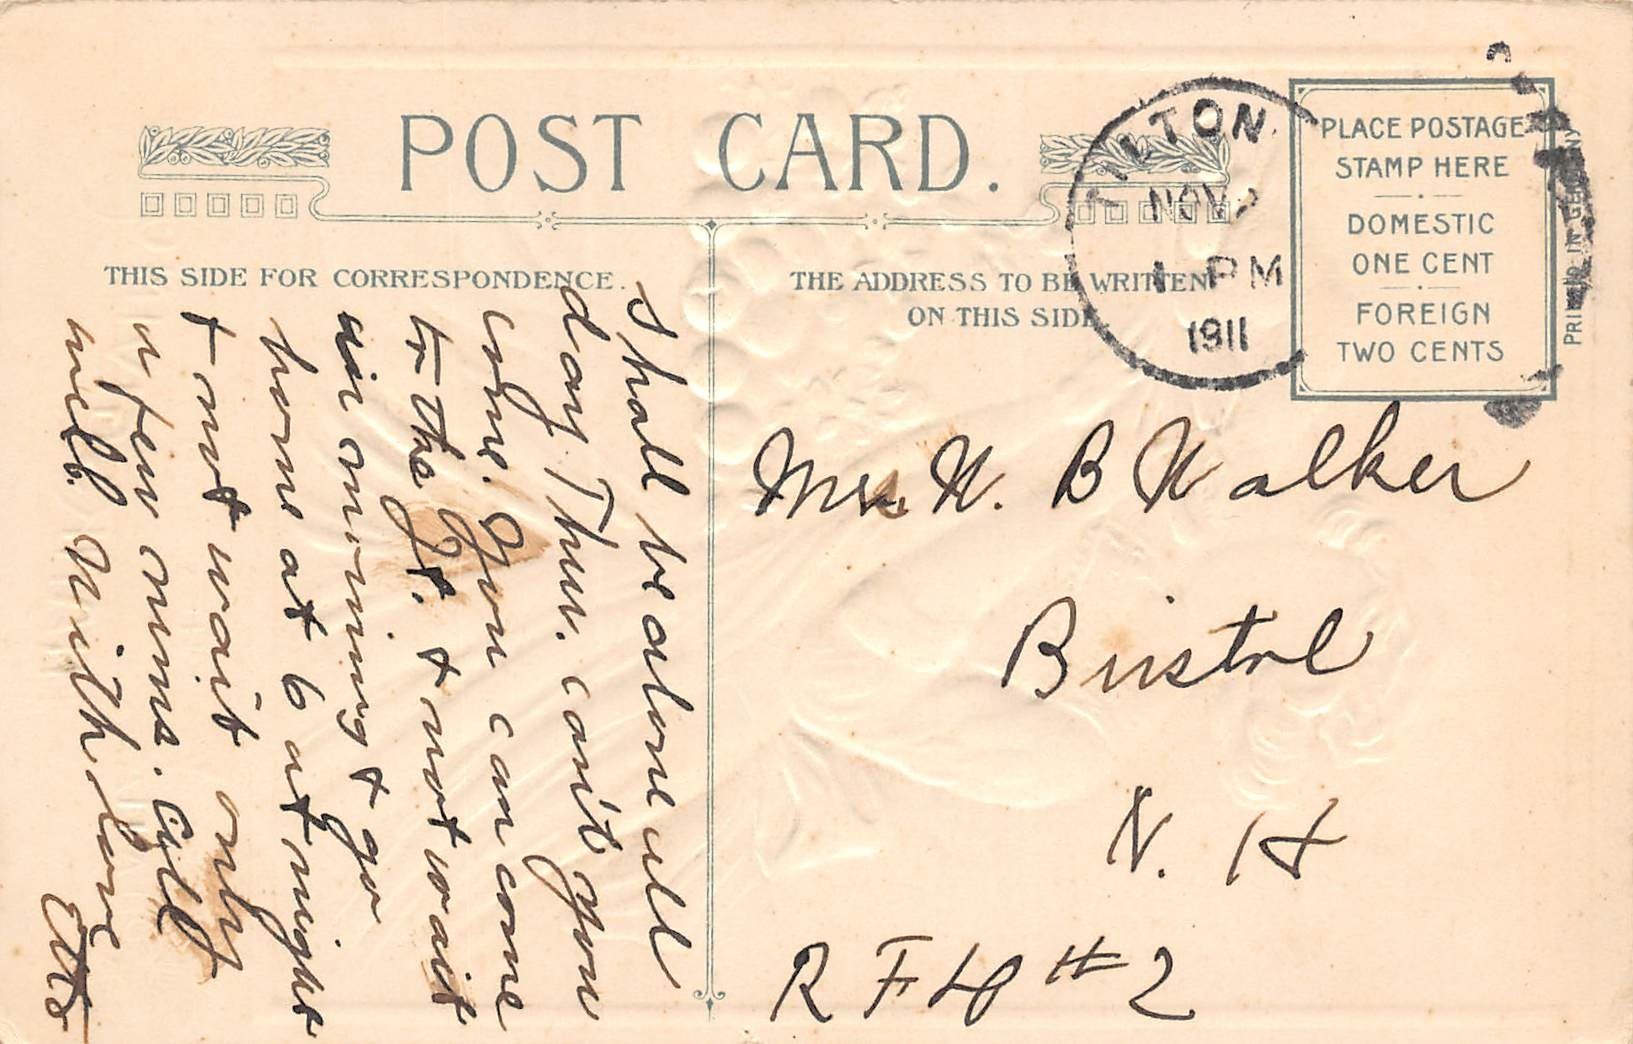 POST CARD.
THIS SIDE FOR CORRESPONDENCE.
THE ADDRESS TO BE WRITTEN
ON THIS SIDE
PLACE POSTAGE
STAMP HERE
DOMESTIC
ONE CENT
FOREIGN
TWO CENTS
PRINTED IN GERMANY
TILTON
NOV
1 PM
1911
Shall be alone all
day Thur. can't you
come. You can come
to the Jt. & not wait
in morning & go
home at 6 at night
& not wait only
a few mins. All
well. With love
Etta
Mrs. W. B Walker
Bristol
N. H
R F D # 2